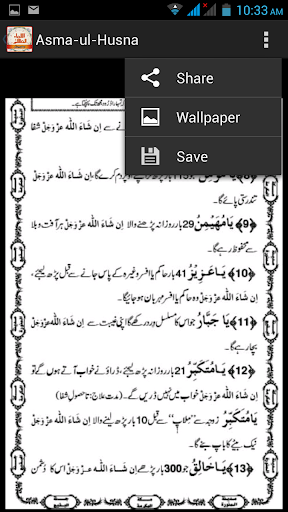 10:33 AM
Asma-ul-Husna
Share
Wallpaper
Save
نے سے اِن شَاءَ اللہ عَزَّوَجَلَّ شفا
تندرستی پائے گا۔
﴿9﴾ یَامُھَیْمِنُ 29 بار روزانہ پڑھنے والا اِن شَاءَ اللہ عَزَّوَجَلَّ ہر آفت و بلا
سے محفوظ رہے گا۔
﴿10﴾ یَاعَزِیْزُ 41 بار حاکم یا افسر وغیرہ کے پاس جانے سے قبل پڑھ لیجئے،
اِن شَاءَ اللہ عَزَّوَجَلَّ وہ حاکم یا افسر مہربان ہو جائے گا۔
﴿11﴾ یَا جَبَّارُ جو اس کا مسلسل ورد رکھے گا اپنی غیبت سے اِن شَاءَ اللہ عَزَّوَجَلَّ
بچا رہے گا۔
﴿12﴾ یَا مُتَکَبِّرُ 21 بار روزانہ پڑھ لیجئے، ڈراؤنے خواب آتے ہوں گے تو
اِن شَاءَ اللہ عَزَّوَجَلَّ خواب میں نہیں ڈریں گے۔ (مدت علاج: تا حصولِ شفا)
یَامُتَکَبِّرُ زوجہ سے "ملاپ" سے قبل 10 بار پڑھ لینے والا اِن شَاءَ اللہ عَزَّوَجَلَّ
نیک بیٹے کا باپ بنے گا۔
﴿13﴾ یَا خَالِقُ جو 300 بار پڑھے اِن شَاءَ اللہ عَزَّوَجَلَّ اس کا دشمن